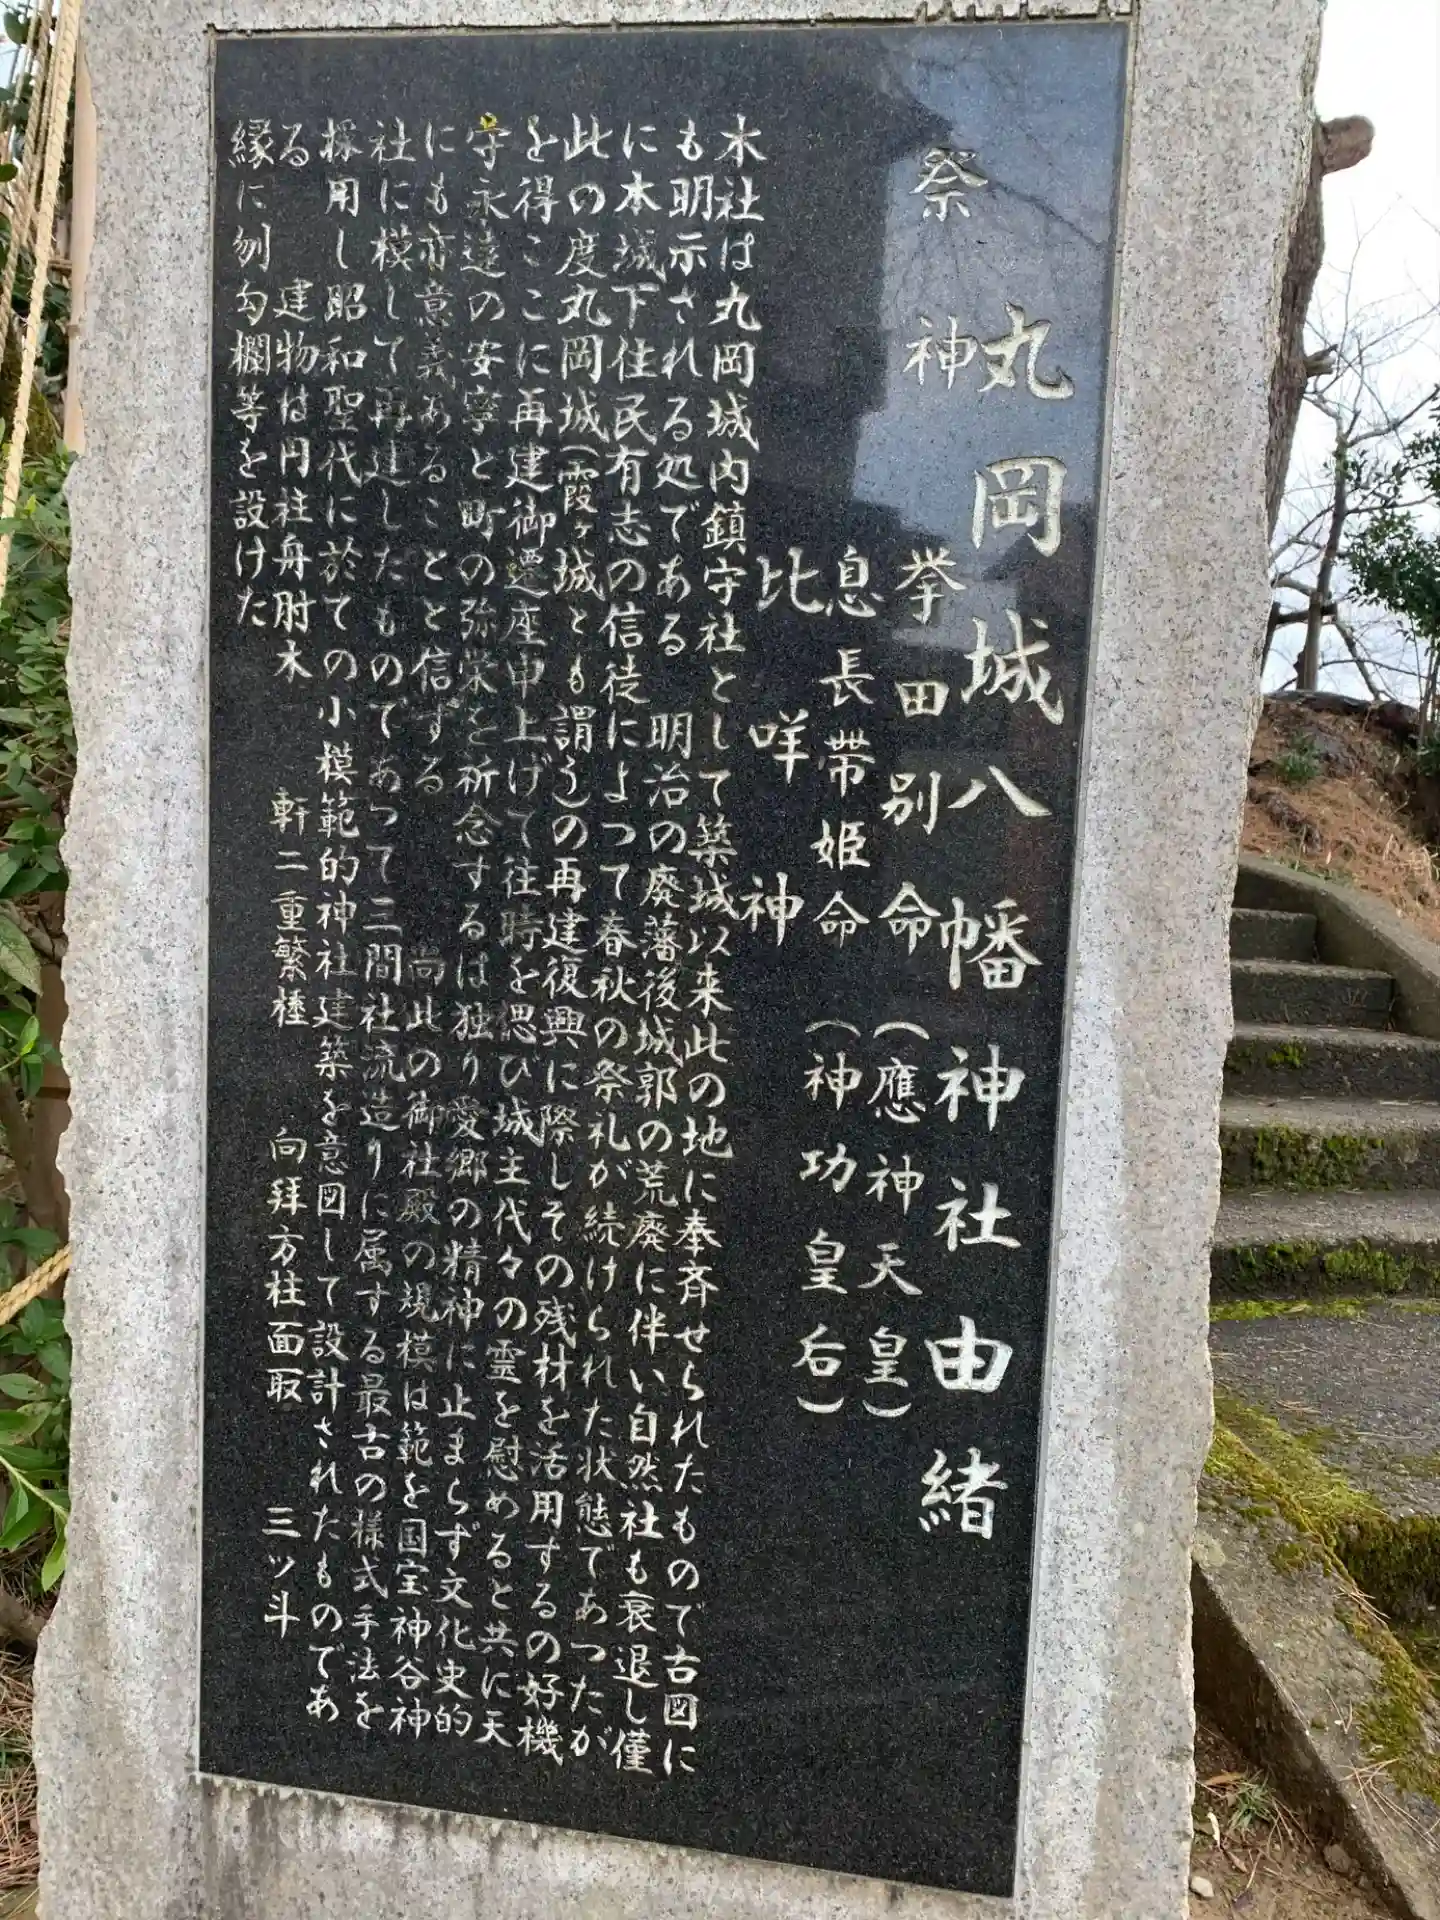 丸岡城八幡神社由緒
祭神 挙田別命(應神天皇)
息長帯姫命(神功皇后)
比咩神
本社は丸岡城内鎮守社として築城以来此の地に奉斉せられたもので古図に
も明示される処である 明治の廃藩後城郭の荒廃に伴い自然社も衰退し僅
に本城下住民有志の信徒によつて春秋の祭礼が続けられた状態であつたが
此の度丸岡城(霞ヶ城とも謂う)の再建復興に際しその残材を活用するの好機
を得ここに再建御遷座申上げて往時を偲び城主代々の霊を慰めると共に天
守永遠の安寧と町の弥栄を祈念するは独り愛郷の精神に止まらず文化史的
にも亦意義あることと信ずる 尚此の御社殿の規模は範を国宝神谷神
社に模して再建したものであつて三間社流造りに属する最古の様式手法を
採用し昭和聖代に於ての小模範的神社建築を意図して設計されたものであ
る 建物は円柱舟肘木 軒二重繁棰 向拝方柱面取 三ツ斗
縁に刎勾欄等を設けた